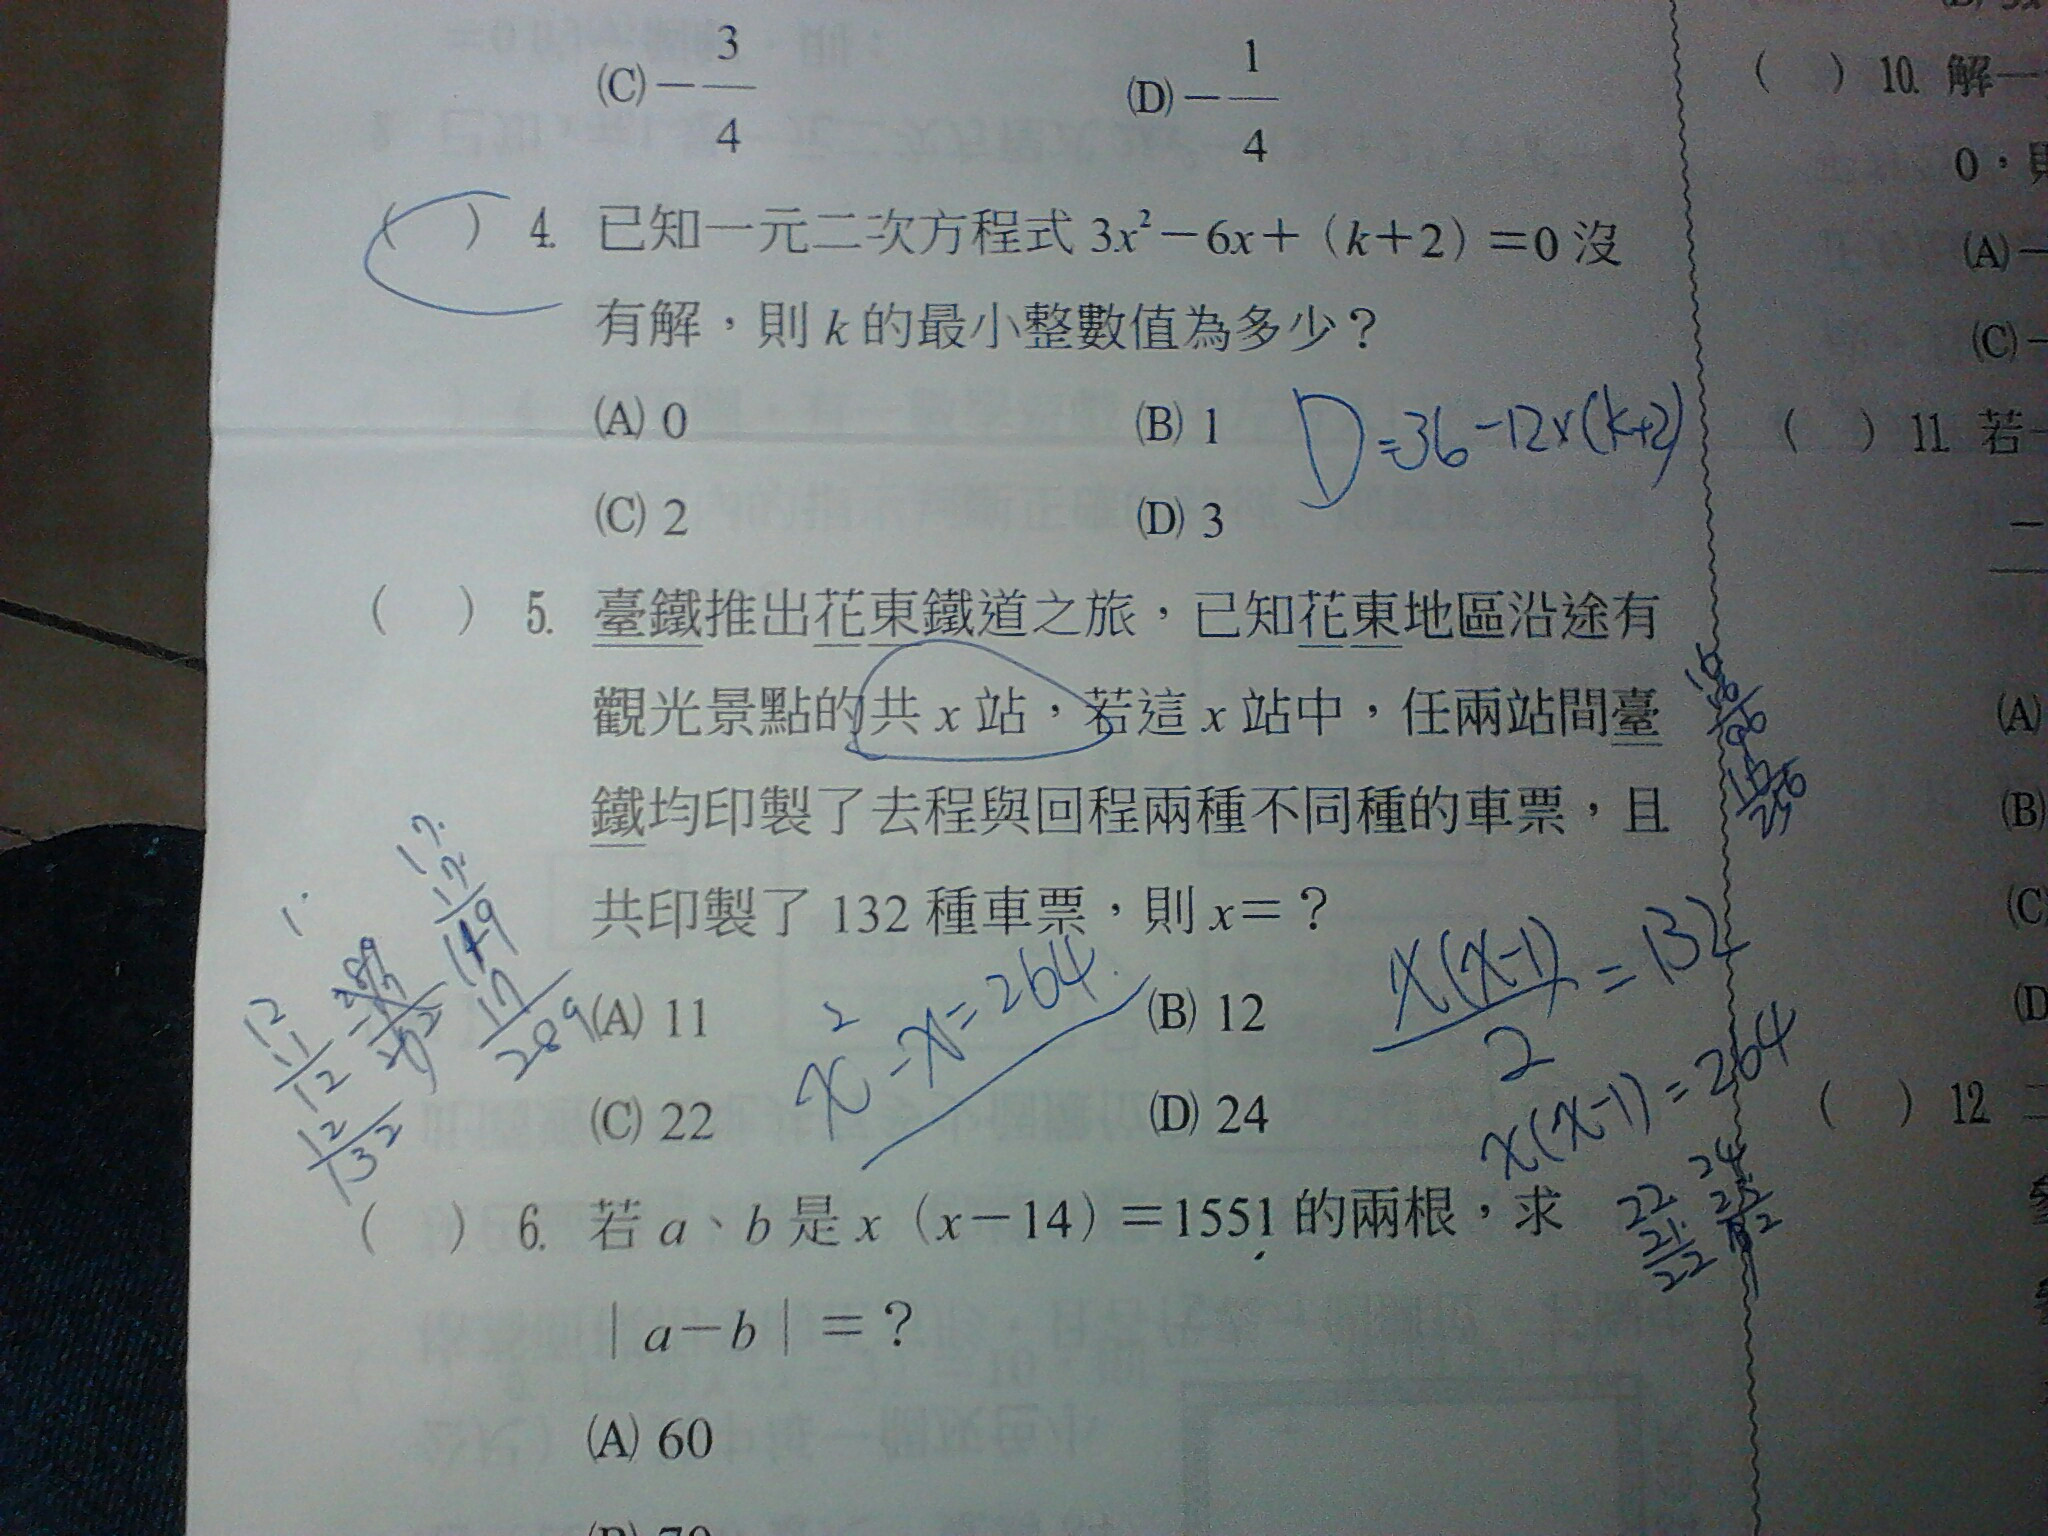 (C)－3/4 (D)－1/4
( ) 4. 已知一元二次方程式 3x²－6x＋（k＋2）＝0 沒
有解，則 k 的最小整數值為多少？
(A) 0 (B) 1
D=36-12×(k+2)
(C) 2 (D) 3
( ) 5. 臺鐵推出花東鐵道之旅，已知花東地區沿途有
觀光景點的共 x 站，若這 x 站中，任兩站間臺
鐵均印製了去程與回程兩種不同種的車票，且
共印製了 132 種車票，則 x＝？
(A) 11 (B) 12
x²-x=264
x(x-1)/2=132
x(x-1)=264
(C) 22 (D) 24
17
17
119
17
289
12
11
12
12
132
( ) 6. 若 a、b 是 x（x－14）＝1551 的兩根，求
｜a－b｜＝？
(A) 60
(B) 70
( ) 10. 解一
0，則
(A)－
(C)－
( ) 11. 若一
(A)
(B)
(C)
(D)
( ) 12 二